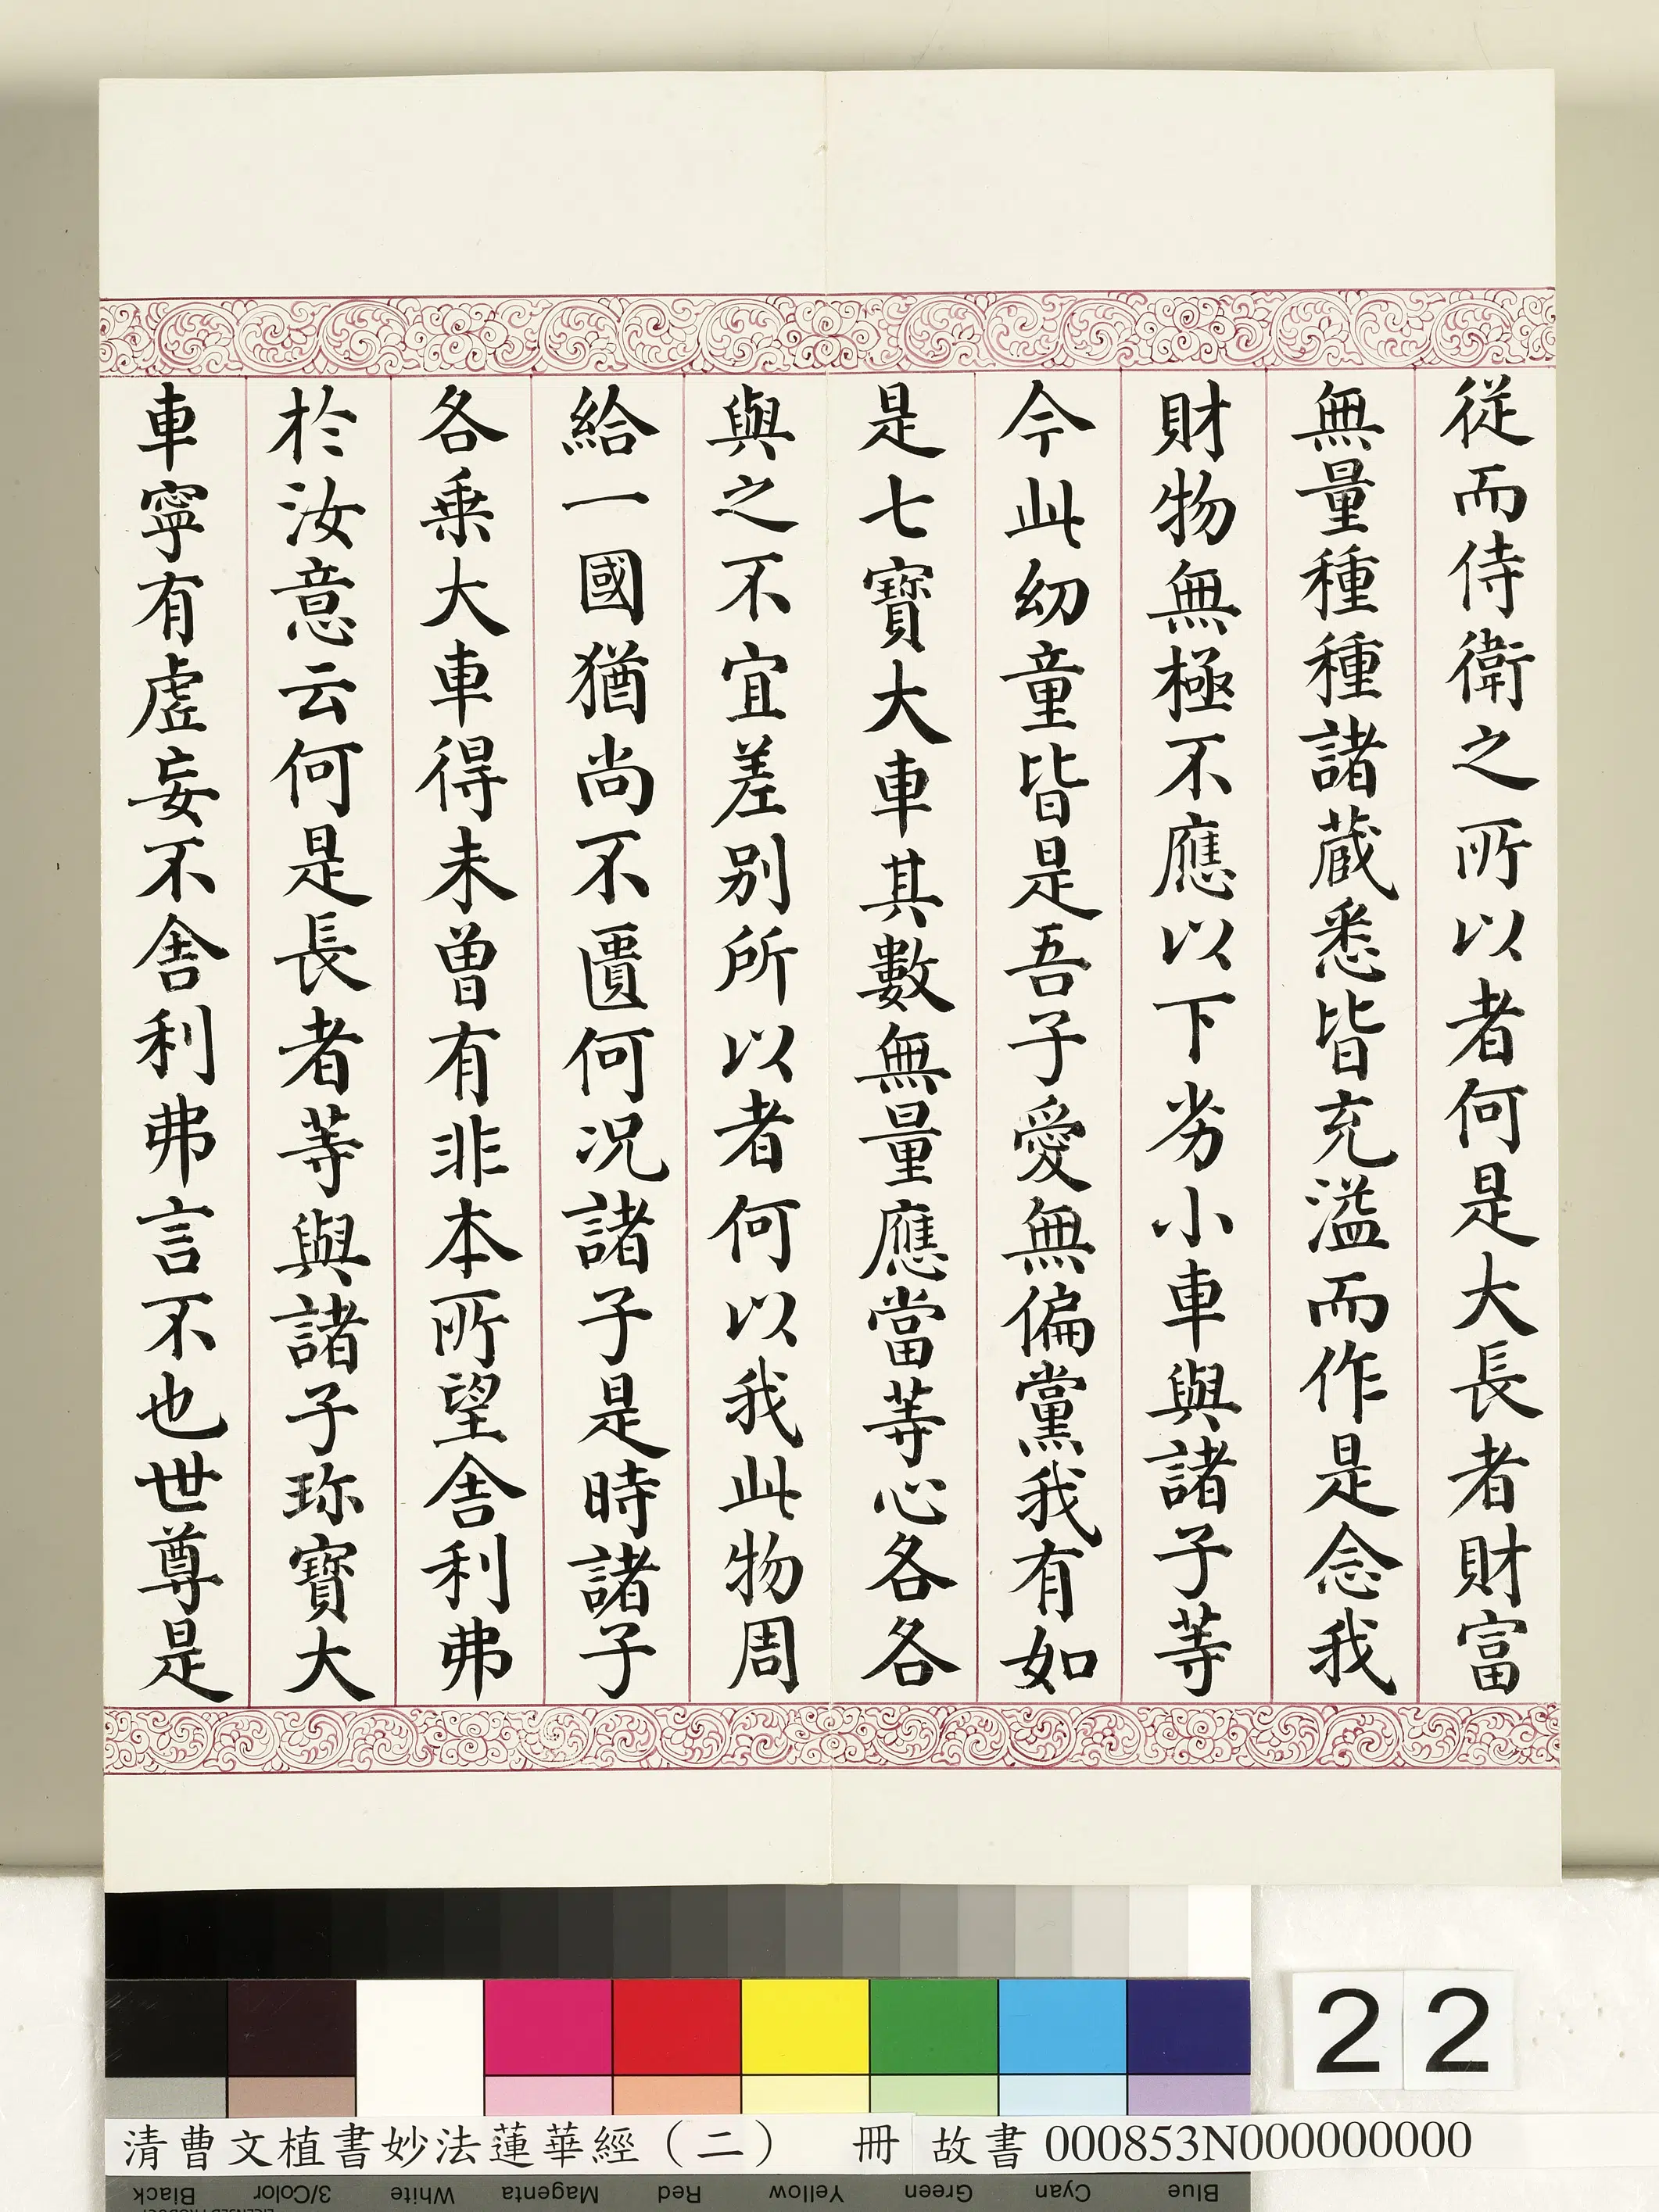 從而侍衛之所以者何是大長者財富
無量種種諸藏悉皆充溢而作是念我
財物無極不應以下劣小車與諸子等
今此幼童皆是吾子愛無偏黨我有如
是七寶大車其數無量應當等心各各
與之不宜差別所以者何以我此物周
給一國猶尚不匱何況諸子是時諸子
各乘大車得未曾有非本所望舍利弗
於汝意云何是長者等與諸子珎寶大
車寧有虛妄不舍利弗言不也世尊是
22
清曹文植書妙法蓮華經（二） 冊 故書 000853N000000000
Black 3/Color White Magenta Red Yellow Green Cyan Blue